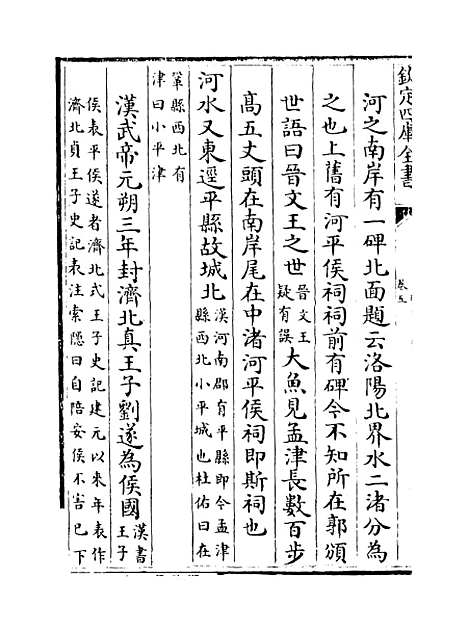 欽定四庫全書
卷五
河之南岸有一碑北面題云洛陽北界水二渚分為
之也上舊有河平侯祠祠前有碑今不知所在郭頒
世語曰晉文王之世晉文王疑有誤大魚見孟津長數百步
髙五丈頭在南岸尾在中渚河平侯祠即斯祠也
河水又東逕平縣故城北漢河南郡有平縣即今孟津縣西北小平城也杜佑曰在
鞏縣西北有津曰小平津
漢武帝元朔三年封濟北真王子劉遂為侯國漢書王子
侯表平侯遂者濟北式王子史記建元以來年表作
濟北貞王子史記表注索隱曰自陪安侯不害已下